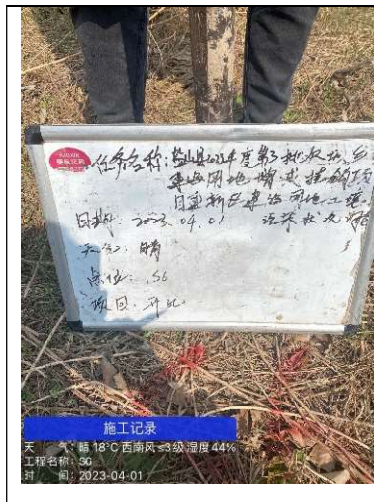 任务名称:萧山县2023年度第3批次城、乡
建设用地增减挂钩项
目宴新区建设用地土壤
日期:2023.04.01 污染状况调
天气:晴
点位:S6
项目:
施工记录
天 气:晴 18℃ 西南风≤3级 湿度44%
工程名称:S6
时 间:2023-04-01